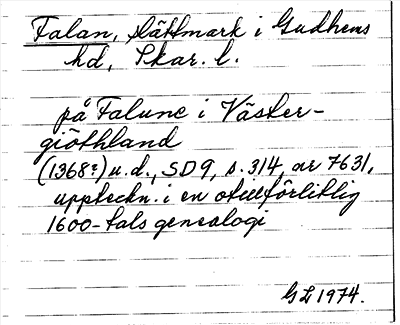 Falan, slättmark i Gudhems
hd, Skar. l.
på Falune i Väster-
giöthland
(1368?) u.d., SD 9, s. 314, nr 7631,
uppteckn. i en otillförlitlig
1600-tals genealogi
GL 1974.